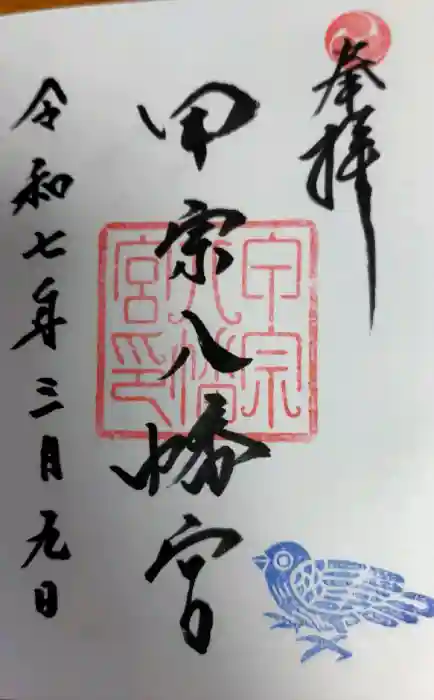 奉拝
甲宗八幡宮
甲宗八幡宮印
令和七年三月九日